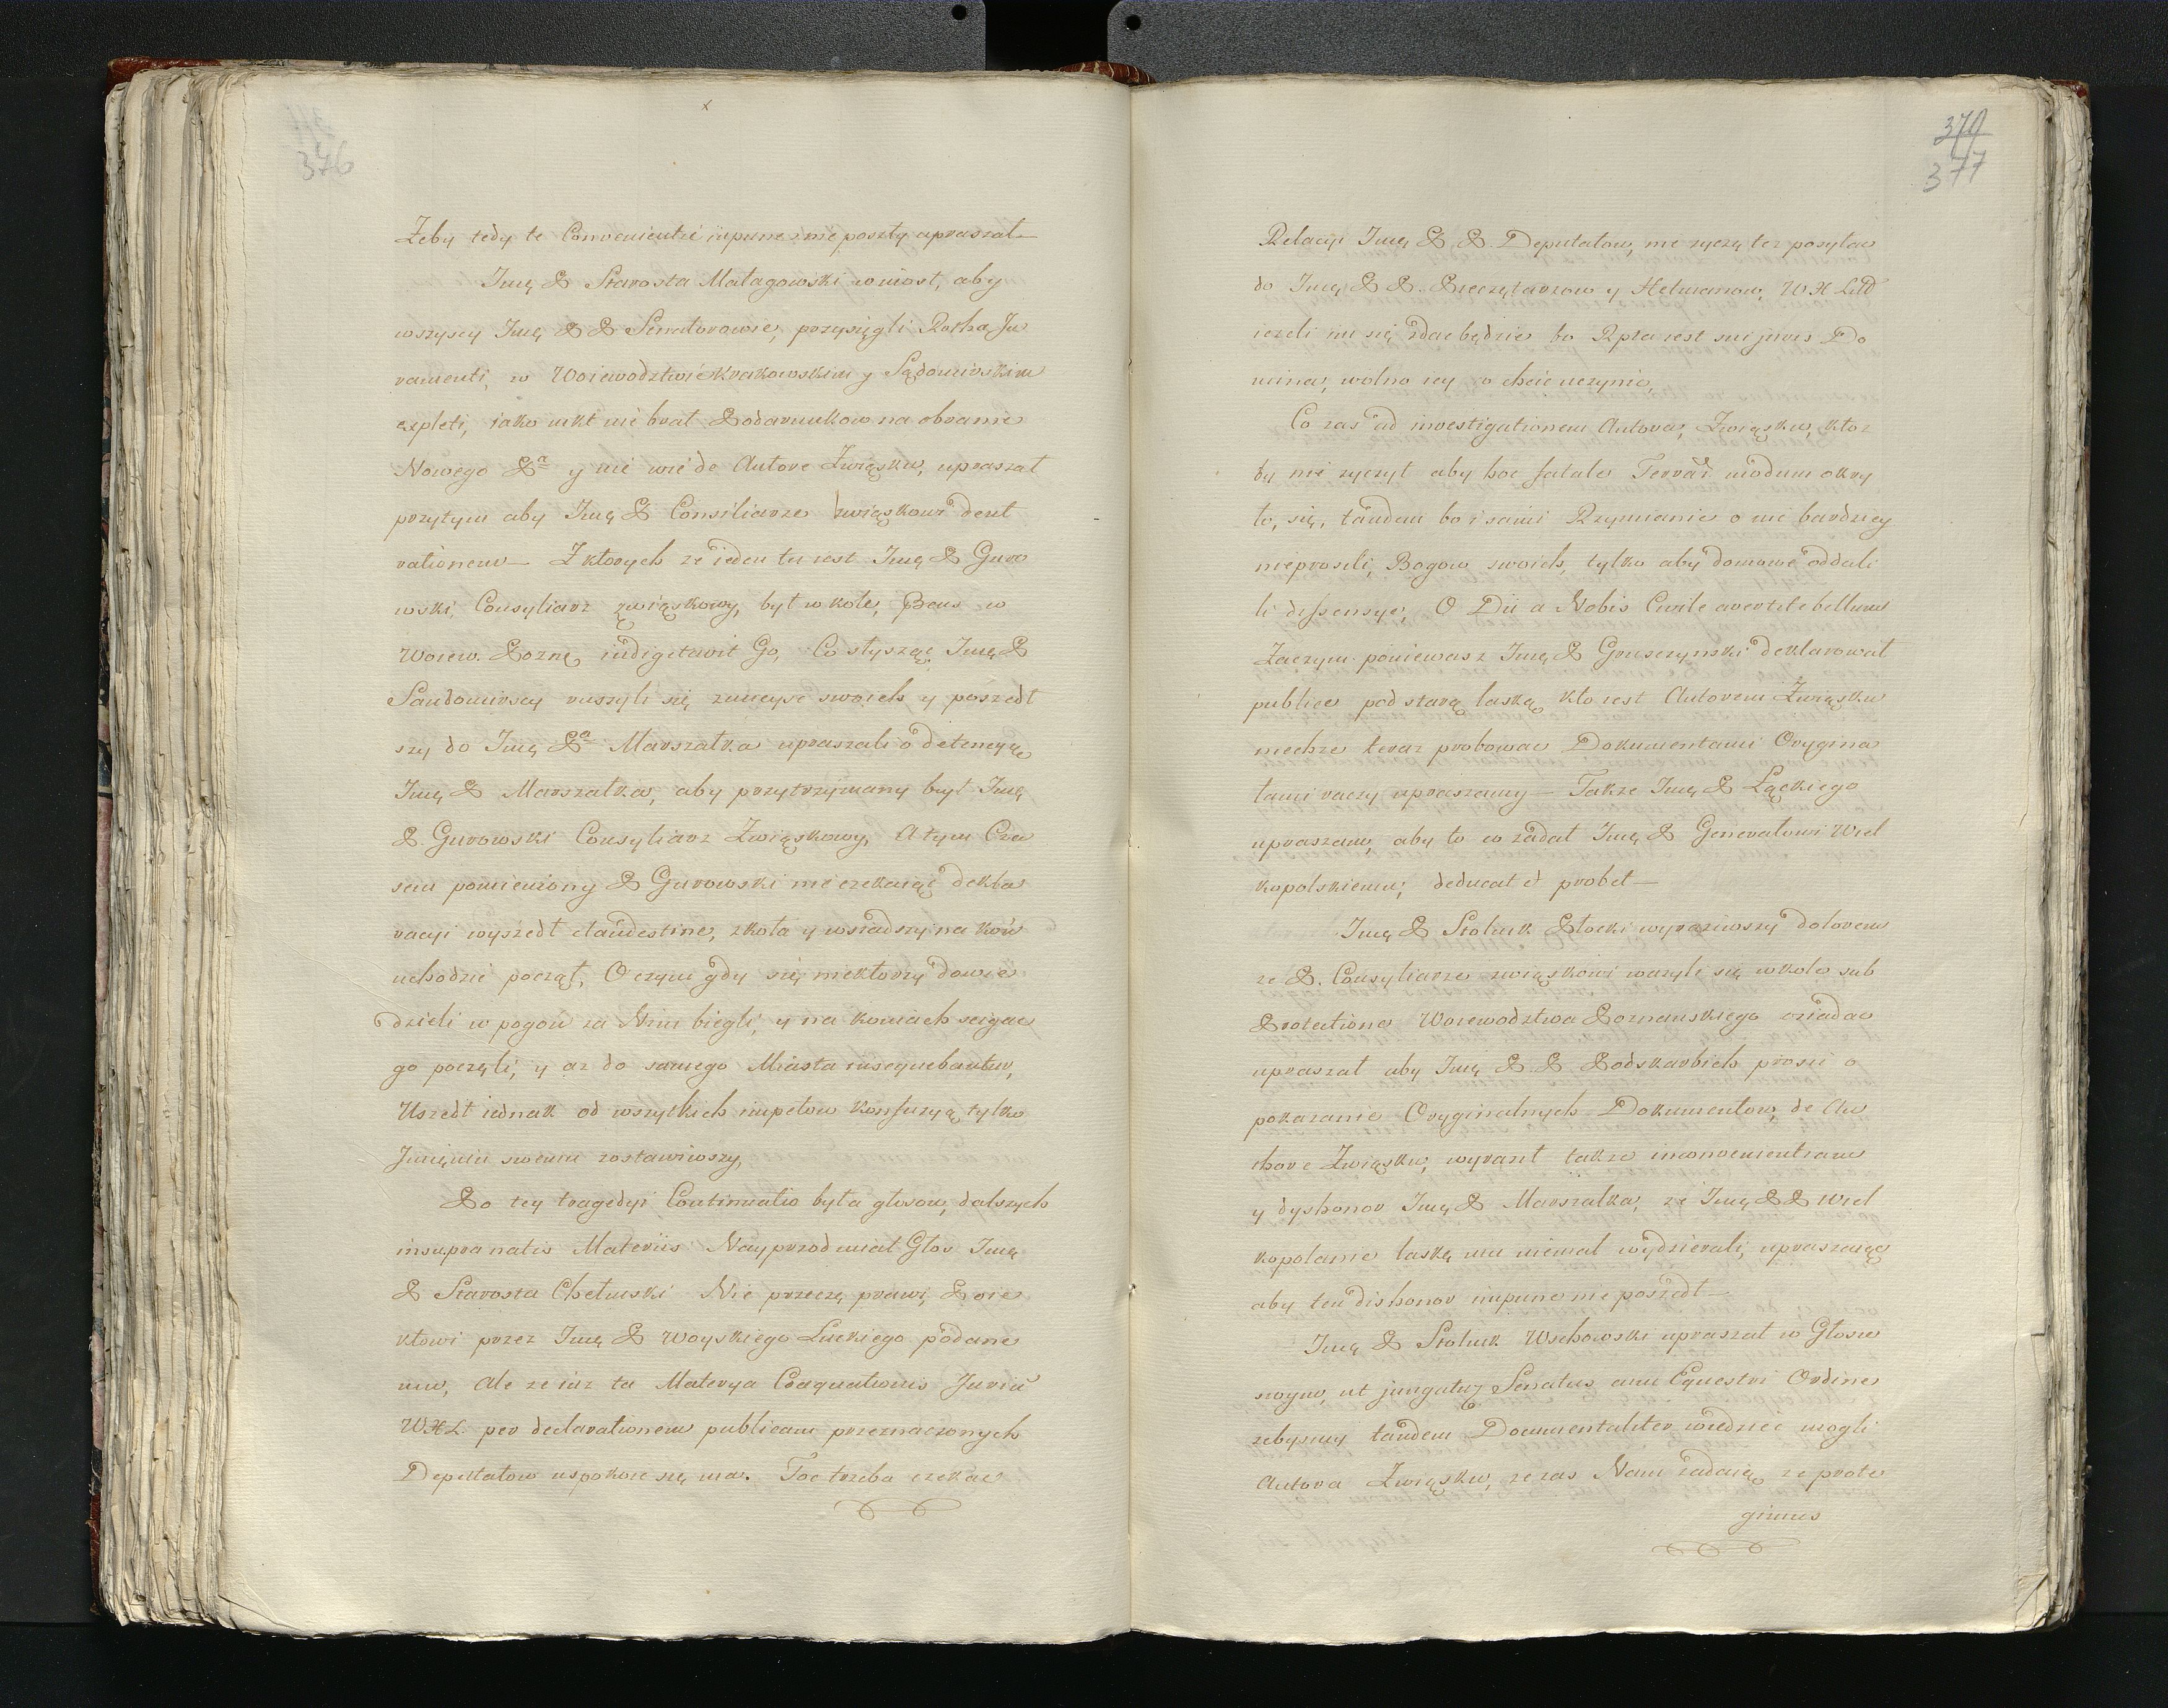 376
Żeby tedy te Convenientie inpune nie poszły upraszał
Jmę P Starosta Małagowski wniosł, aby
wszyscy Jmę P P Senatorowie, przysięgli Rotha Ju
ramenti, w Woiewodztwie Krakowskim y Sądomirskim
expleti, iako nikt nie brał Podarunkow na obranie
Nowego Pa y nie wie de Autore Związku, upraszał
przytym aby Jmę P Consiliarze związkowi dent
rationem — Z ktorych że ieden tu iest Jmę P Guro
wski, Consyliarz związkowy, był w kole,
Woiew. Pozną indigitavit Go, Co słysząc Jmę P
Sandomirscy ruszyli się zmieysc swoich y poszedł
szy do Jmę Pa Marszałka upraszali o detencyą
Jmę P Marszałka, aby przytrzymany był Jmę
P. Gurowski Consyliarz Związkowy, A tym Cza
sem pomieniony P Gurowski nie czekaiąc dekla
racyi wyszedł clandestine, z koła y wsiadszy na koń
uchodzić począł, O czym gdy się niektorzy dowie
dzieli w pogoń za Nim biegli, y na koniach scigać
go poczęli, y aż do samego Miasta insequebantur,
Uszedł iednak od wszytkich impetow konfuzyą tylko
Jmieniu swemu zostawiwszy,
Po tey tragedyi Continuatio była głosow, dalszych
insupra natis Materiis Nayprzod miał Głos Jmę
P Starosta Chełmski Nie przeczę prawi, Proie
ktowi przez Jmę P Woyskiego Łuckiego podane
mu, Ale że iuż ta Materya Coaequationis Juriū
WXL. per declarationem publicam przeznaczonych
Deputatow uspokoic się ma. Toc trzeba czekac
370
377
Relacyi Jmę P P. Deputatow, nie życzę też posyłac
do Jmę P P. Pieczętarzow y Hetmanow, WX Litt
ieżeli im się zdac będzie bo Rpta iest sui juris Do
mina, wolno iey co chcie uczynic,
Co zas ad investigationem Autora, Związku, ktoz
by nie życzył aby hoc fatale Terris modum okry
to, się, tandem bo i sami Rzymianie o nic bardziey
nieprosili, Bogow swoich, tylko aby domowe oddali
li dissensye, O Dii a Nobis Civile avertite bellum
Zaczym poniewasz Jmę P Gruszynski deklarował
publice pod starą laską kto iest Autorem Związku
niechże teraz probowac Dokumentami Orygina
łami raczy upraszamy — Także Jmę P Łąckiego
upraszam, aby to co zadał Jmę P Generałowi Wiel
kopolskiemu, deducat et probet —
Jmę P Stolnik Płocki wyraziwszy dolorem
że P. Consyliarze związkowi ważyli się w kole sub
Protectione Woiewodztwa Poznanskiego osiadac
upraszał aby Jmę P P Podskarbich prosic o
pokazanie Oryginalnych Dokumentow, de Au
thore Związku, wyraził także inconvenientiam
y dyshonor Jmę P Marszałka, że Jmę P P Wiel
kopolanie laskę mu niemal wydzierali, upraszaiąc
aby ten dishonor impune nie poszedł —
Jmę P Stolnik Wschowski upraszał w Głosie
swym, ut jungatur Senatus cum Equestri Ordine
żebysmy tandem Documentaliter wiedziec mogli
Autora Związku, że zas Nam zadaią że prote
gimus